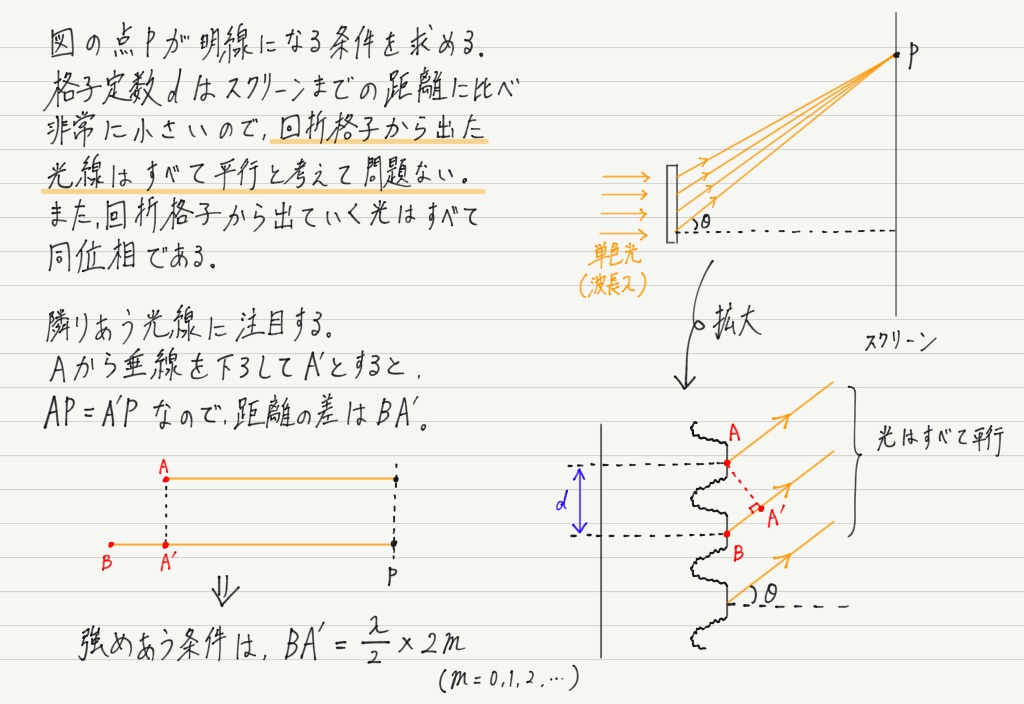 図の点Pが明線になる条件を求める.
格子定数dはスクリーンまでの距離に比べ
非常に小さいので,回折格子から出た
光線はすべて平行と考えて問題ない。
また,回折格子から出ていく光はすべて
同位相である。
隣りあう光線に注目する。
Aから垂線を下ろしてA'とすると,
AP=A'Pなので,距離の差はBA'。
A
B
A'
P
強めあう条件は, BA' = λ/2 × 2m
(m=0,1,2,…)
P
θ
単色光
(波長λ)
スクリーン
拡大
A
d
A'
B
θ
光はすべて平行